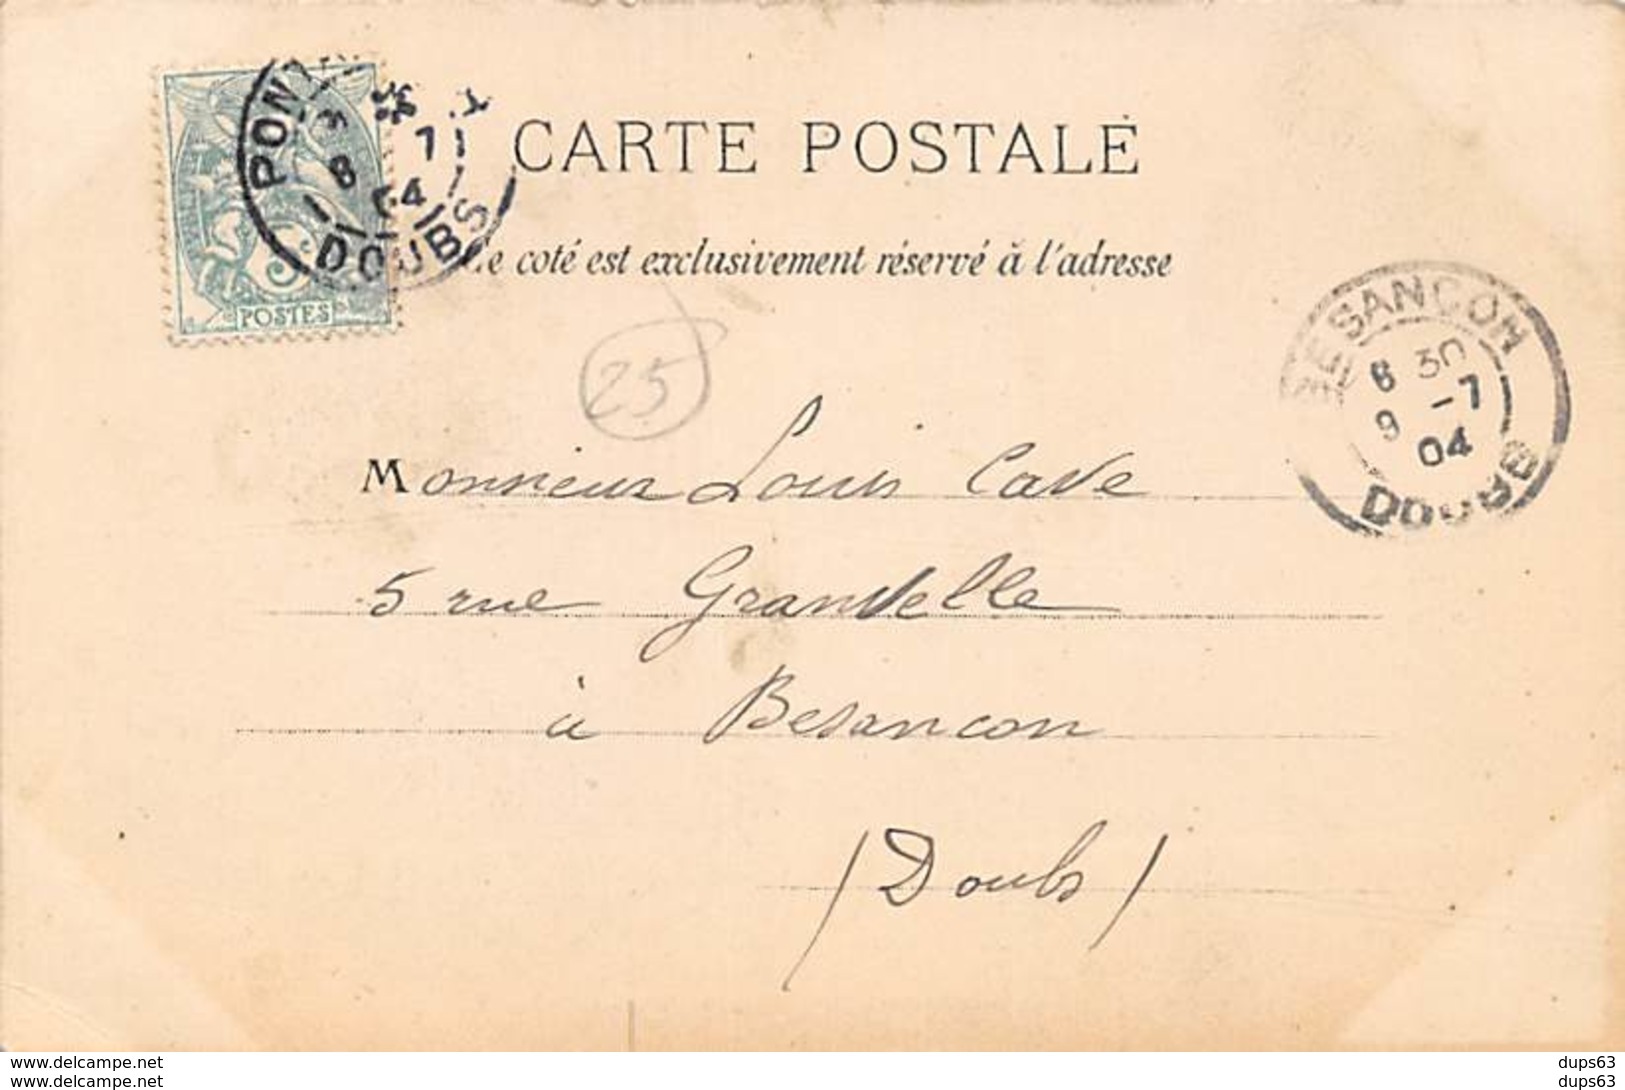 CARTE POSTALE
Ce coté est exclusivement réservé à l'adresse
DOUBS
8 7
04
5
POSTES
25
BESANCON
6 30
9 -7
04
DOUBS
Monsieur Louis Cave
5 rue Granvelle
à Besancon
(Doubs)
delcampe.net
dups63
dups63